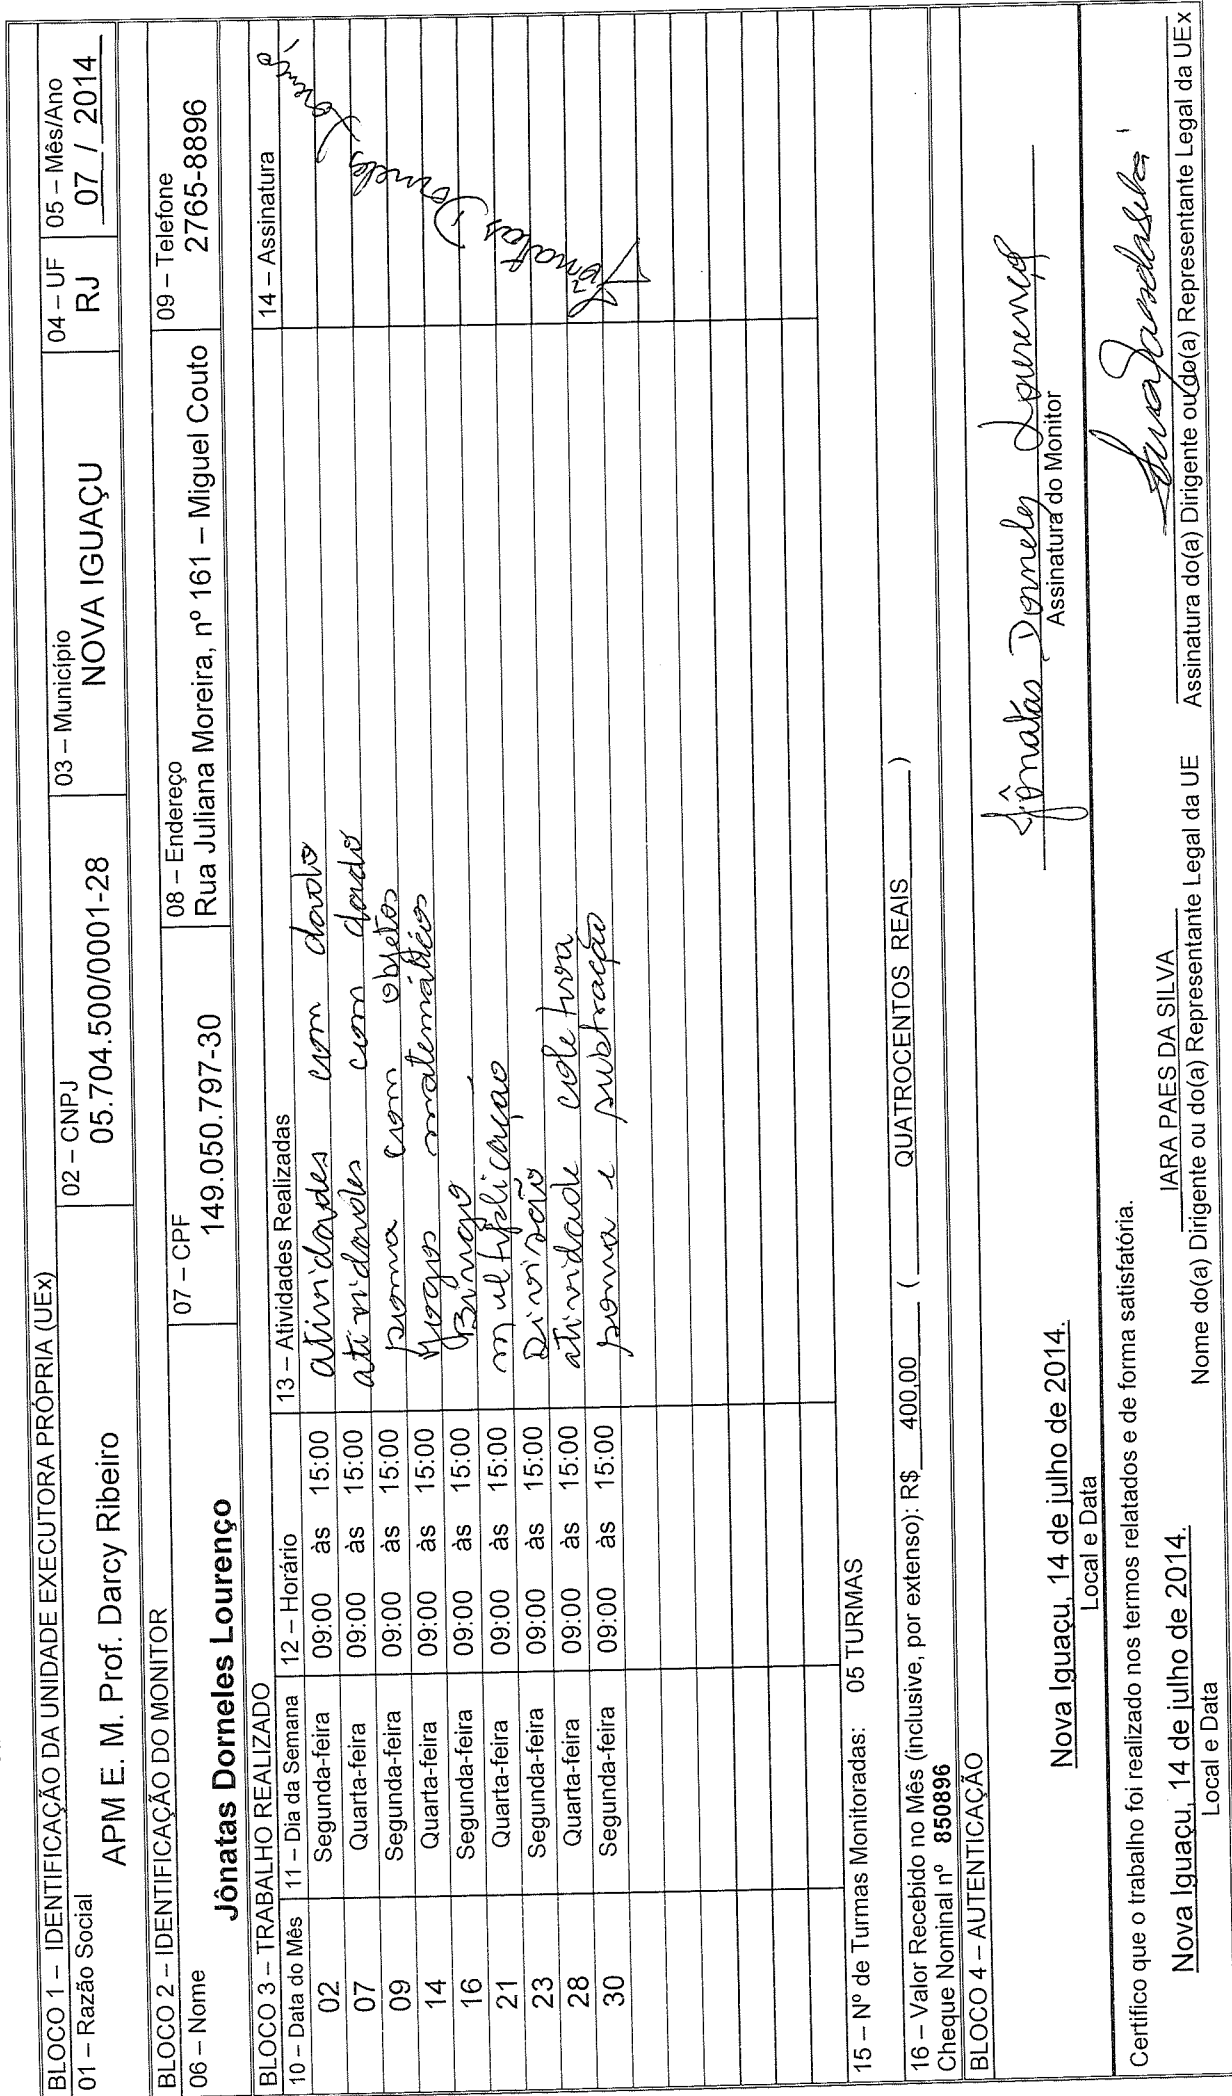 BLOCO 1 – IDENTIFICAÇÃO DA UNIDADE EXECUTORA PRÓPRIA (UEx)
01 – Razão Social
APM E. M. Prof. Darcy Ribeiro
02 – CNPJ
05.704.500/0001-28
03 – Município
NOVA IGUAÇU
04 – UF
RJ
05 – Mês/Ano
07 / 2014
BLOCO 2 – IDENTIFICAÇÃO DO MONITOR
06 – Nome
Jônatas Dorneles Lourenço
07 – CPF
149.050.797-30
08 – Endereço
Rua Juliana Moreira, nº 161 – Miguel Couto
09 – Telefone
2765-8896
BLOCO 3 – TRABALHO REALIZADO
10 – Data do Mês 11 – Dia da Semana 12 – Horário 13 – Atividades Realizadas 14 – Assinatura
02 Segunda-feira 09:00 às 15:00 atividades com dado
07 Quarta-feira 09:00 às 15:00 atividades com dado
09 Segunda-feira 09:00 às 15:00 soma com objetos
14 Quarta-feira 09:00 às 15:00 Jogos matemáticos
16 Segunda-feira 09:00 às 15:00 Bingo
21 Quarta-feira 09:00 às 15:00 multiplicaçao
23 Segunda-feira 09:00 às 15:00 Divisão
28 Quarta-feira 09:00 às 15:00 atividade coletiva
30 Segunda-feira 09:00 às 15:00 soma e subtração
Jônatas Dorneles Lourenço
15 – Nº de Turmas Monitoradas: 05 TURMAS
16 – Valor Recebido no Mês (inclusive, por extenso): R$ 400,00 ( QUATROCENTOS REAIS )
Cheque Nominal nº 850896
BLOCO 4 – AUTENTICAÇÃO
Nova Iguaçu, 14 de julho de 2014.
Local e Data
Jônatas Dorneles Lourenço
Assinatura do Monitor
Certifico que o trabalho foi realizado nos termos relatados e de forma satisfatória.
Nova Iguaçu, 14 de julho de 2014.
Local e Data
IARA PAES DA SILVA
Nome do(a) Dirigente ou do(a) Representante Legal da UE
Assinatura do(a) Dirigente ou do(a) Representante Legal da UEx